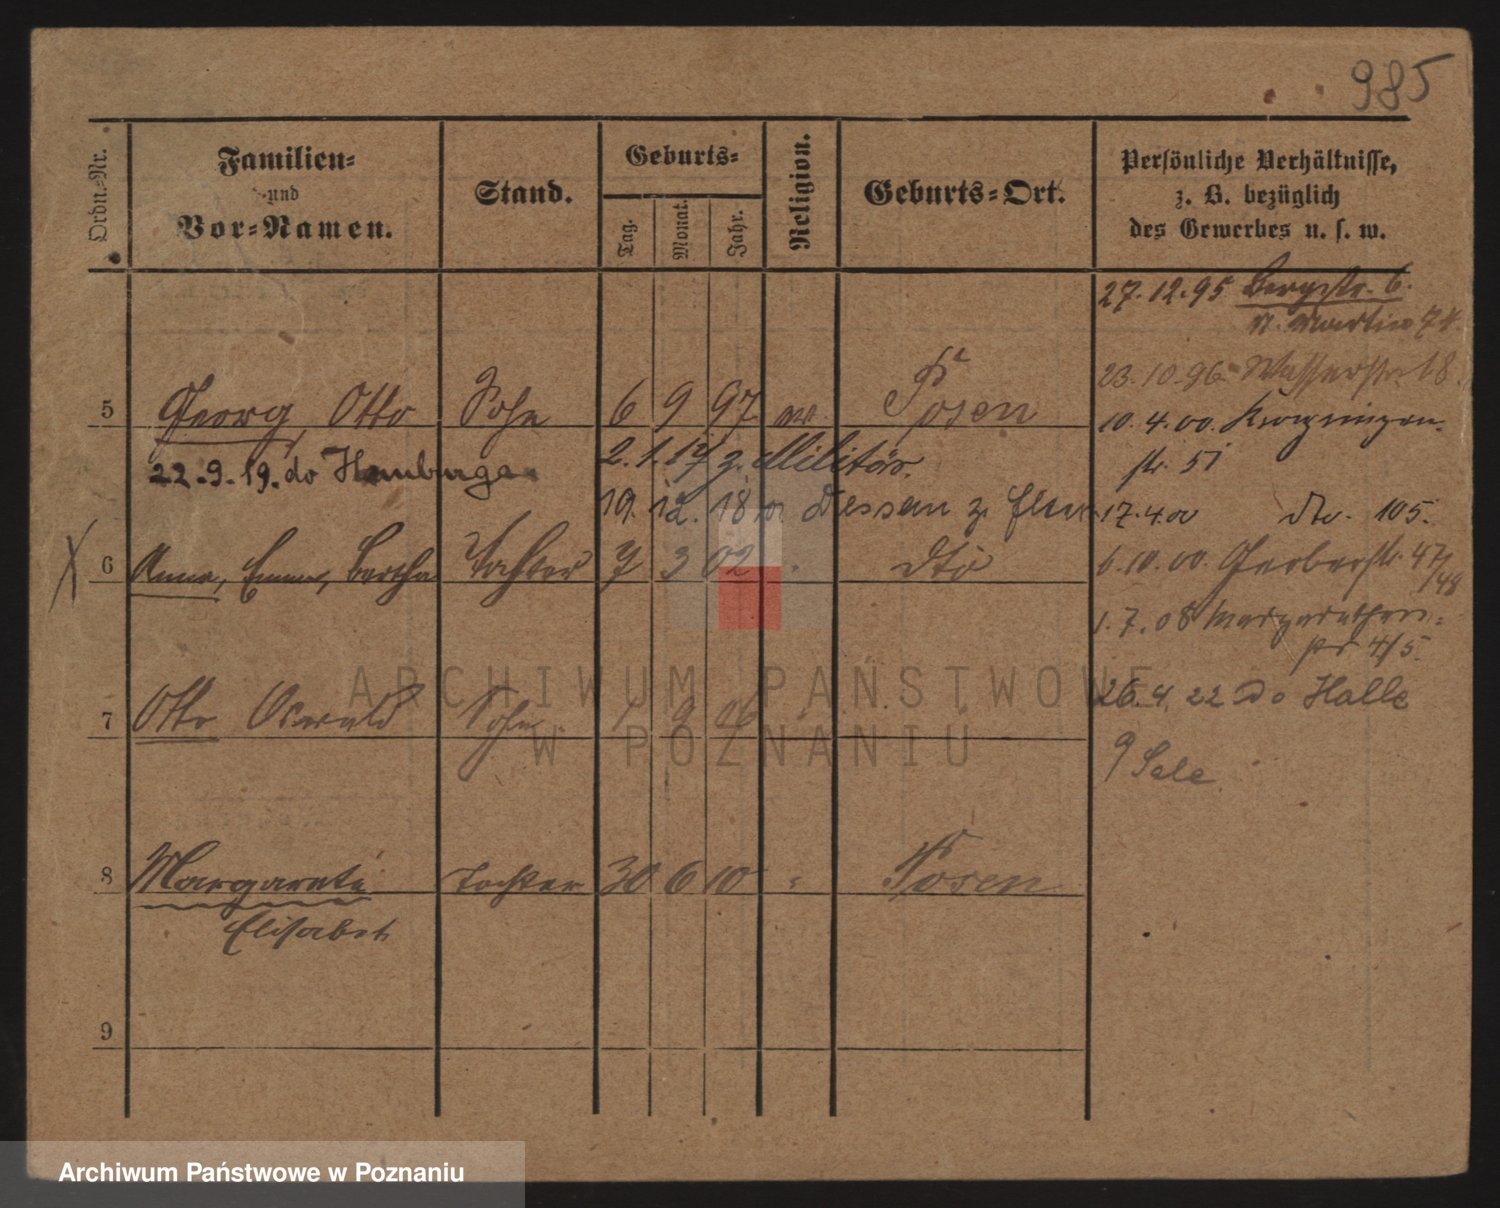 985
Ordn.-Nr.
Familien-
und
Vor-Namen.
Stand.
Geburts-
Tag.
Monat.
Jahr.
Religion.
Geburts-Ort.
Persönliche Verhältnisse,
z. B. bezüglich
des Gewerbes u. s. w.
27.12.95 Bergstr. 6.
St. Martin 74.
23.10.96 Wasserstr. 18.
5 Georg, Otto Sohn 6 9 97 Posen
10.4.00.
str. 51
22.9.19. do Hamburg
2.1.17 z. Militär.
19.12.18 Dessau z. Eltern
17.4.00 dto. 105.
6 Anna, Emma, Bertha Tochter 7 3 02 dto
6.10.00. Gerberstr. 47/48
1.7.08 Margarethen-
str 4/5.
26.4.22 do Halle
7 Otto Oswald Sohn 9 06
ARCHIWUM PAŃSTWOWE
W POZNANIU
8 Margarete Tochter 30 6 10 " Posen
Elisabet
9
Archiwum Państwowe w Poznaniu